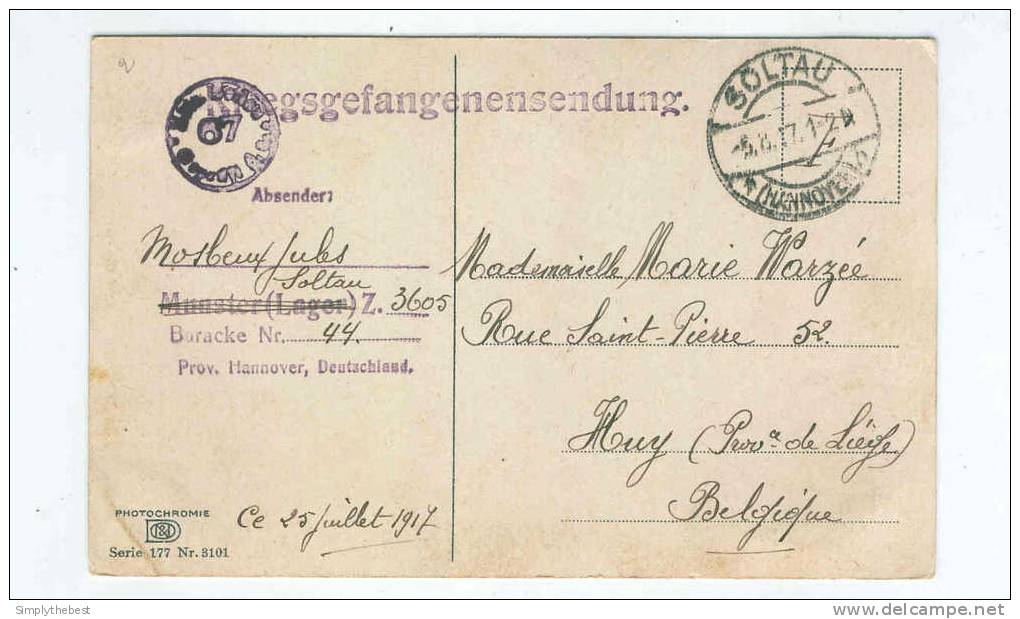 Kriegsgefangenensendung.
67
SOLTAU
(HANNOVER)
Absender:
Mosbeux Jules
Soltau
Munster (Lager) Z. 3605
Baracke Nr. 44.
Prov. Hannover, Deutschland.
Mademoiselle Marie Warzée
Rue Saint-Pierre 52.
Huy (Prov.ce de Liége)
Belgique
Ce 25 juillet 1917
PHOTOCHROMIE
Serie 177 Nr. 3101
Simplythebest
delcampe.net